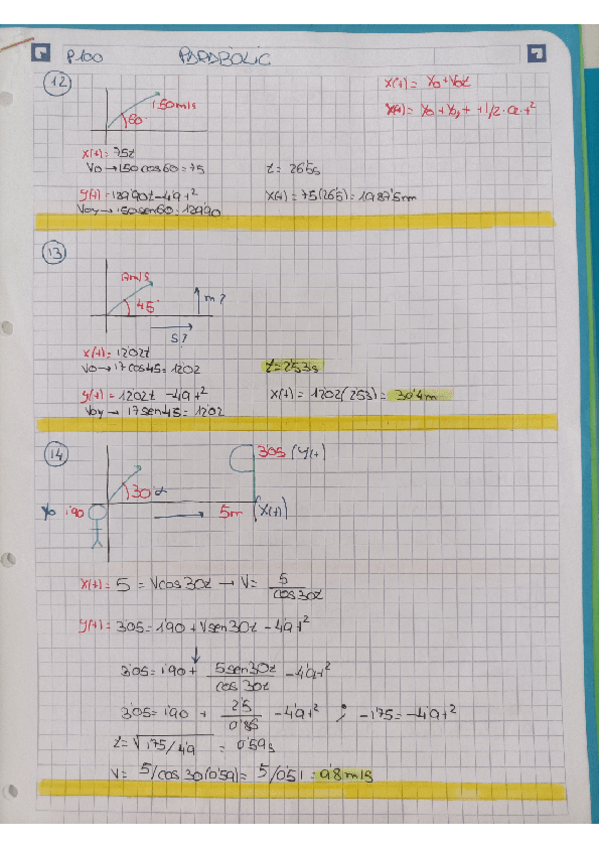 P100 PARABOLIC
12
150m/s
60
x(t) = x0 + v0t
y(t) = y0 + v0y t + 1/2·a·t²
x(t) = 75t
V0 → 150 cos60 = 75
t = 26'5s
y(t) = 129'90t - 4'9t²
x(t) = 75(26'5) = 1987'5m
Voy → 150sen60 = 129'90
13
17m/s
45°
m?
s?
x(t) = 12'02t
V0 → 17cos45 = 12'02
t = 2'53s
y(t) = 12'02t - 4'9t²
x(t) = 12'02(2'53) = 30'4m
Voy → 17sen45 = 12'02
14
3'05 (y(t)
30 α
y0 1'90
5m (x(t)
x(t) = 5 = Vcos30t → V = 5/cos30t
y(t) = 3'05 = 1'90 + Vsen30t - 4'9t²
↓
3'05 = 1'90 + 5sen30t/cos30t - 4'9t²
3'05 = 1'90 + 2'5/0'86 - 4'9t² ; -1'75 = -4'9t²
t = √1'75/4'9 = 0'59s
V = 5/cos30(0'59) = 5/0'51 = 9'8m/s